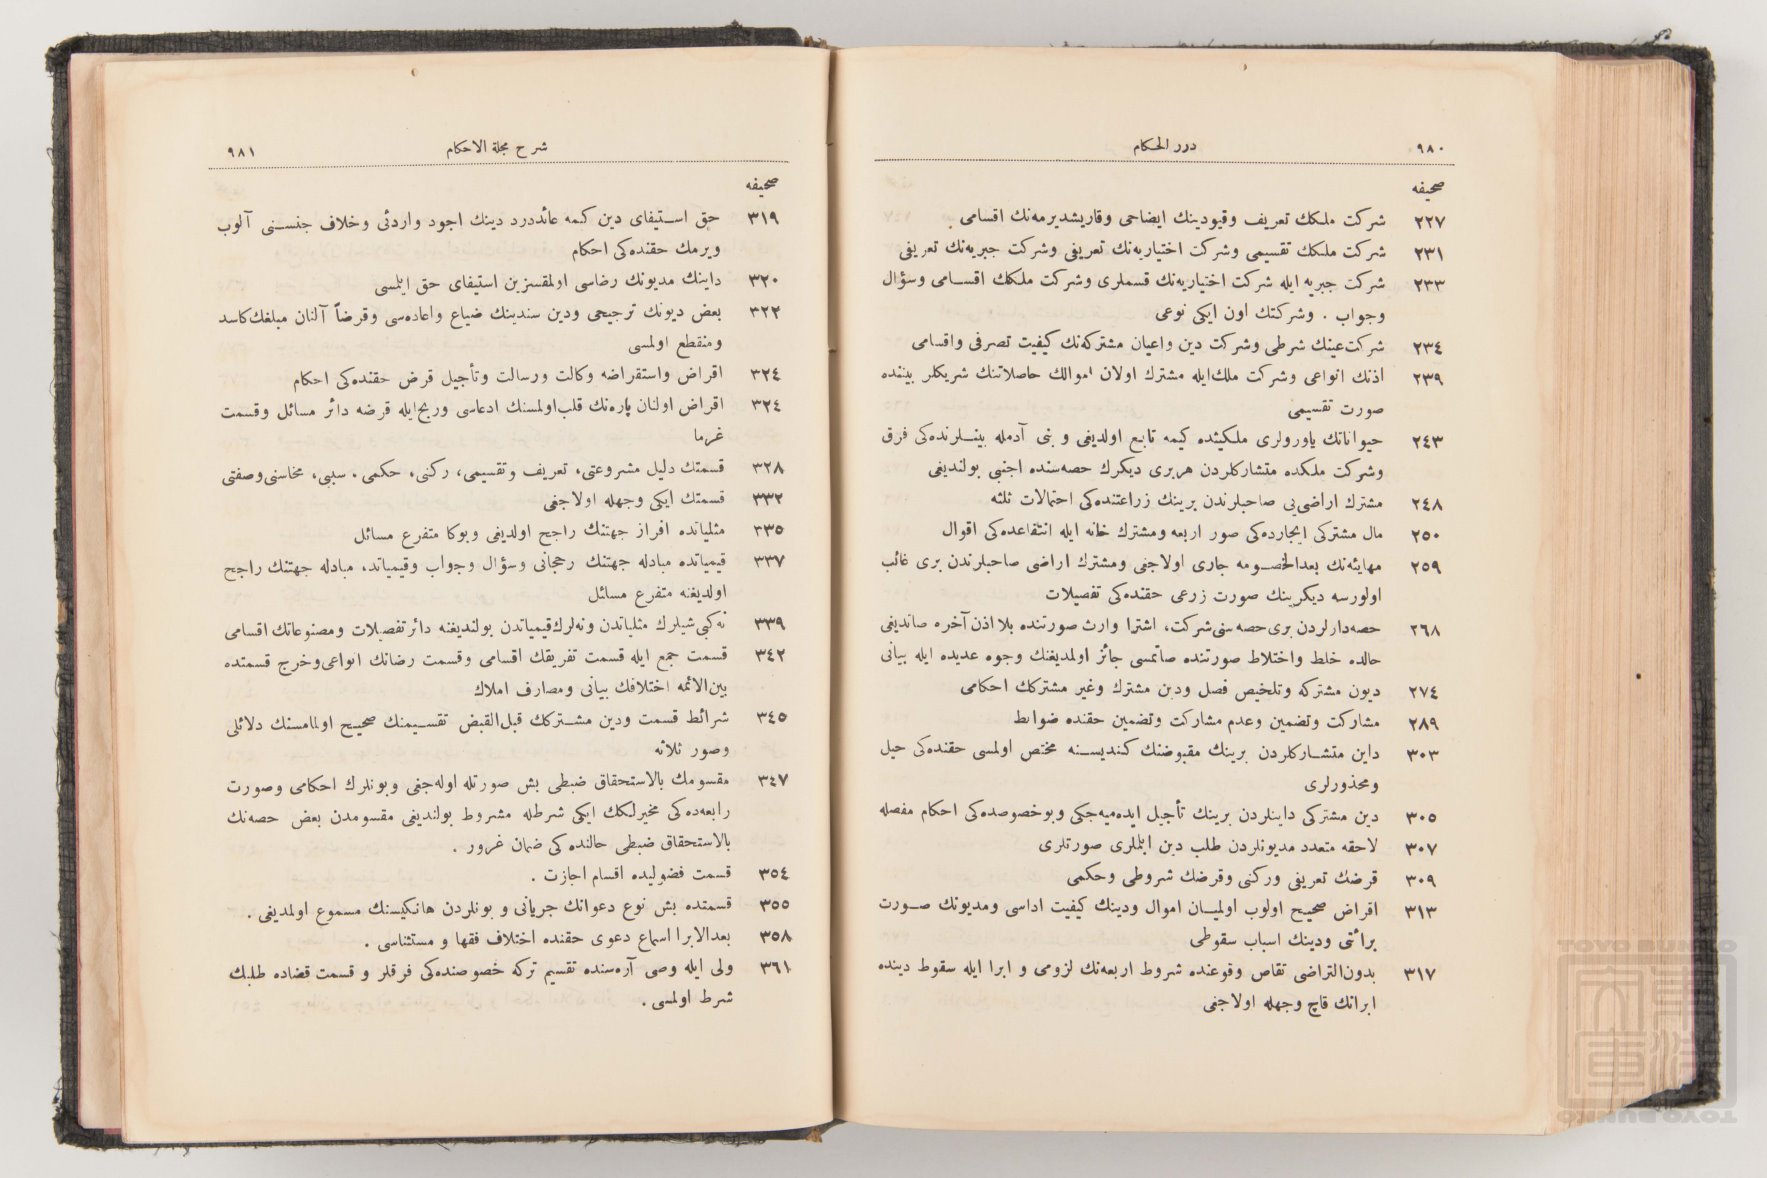 ٩٨٠
درر الحكام
صحيفه
٢٢٧ شركت ملكك تعريف وقيودينك ايضاحى وقاريشديرمه‌نك اقسامى
٢٣١ شركت ملكك تقسيمى وشركت اختياريه‌نك تعريفى وشركت جبريه‌نك تعريفى
٢٣٣ شركت جبريه ايله شركت اختياريه‌نك قسملرى وشركت ملكك اقسامى وسؤال
وجواب . وشركتك اون ايكى نوعى
٢٣٤ شركت‌عينك شرطى وشركت دين واعيان مشتركه‌نك كيفيت تصرفى واقسامى
٢٣٩ اذنك انواعى وشركت ملك‌ايله مشترك اولان اموالك حاصلاتنك شريكلر بيننده
صورت تقسيمى
٢٤٣ حيواناتك ياورولرى ملكيتده كيمه تابع اولديغى و بنى آدمله بينلرنده‌كى فرق
وشركت ملكده متشاركلردن هربرى ديكرك حصه‌سنده اجنبى بولنديغى
٢٤٨ مشترك اراضى‌يى صاحبلرندن برينك زراعتنده‌كى احتمالات ثلثه
٢٥٠ مال مشتركى ايجارده‌كى صور اربعه ومشترك خانه ايله انتفاعده‌كى اقوال
٢٥٩ مهايئه‌نك بعدالخصومه جارى اولاجغى ومشترك اراضى صاحبلرندن برى غائب
اولورسه ديكرينك صورت زرعى حقنده‌كى تفصيلات
٢٦٨ حصه‌دارلردن برى‌حصه سنى‌شركت، اشترا وارث صورتنده بلااذن‌آخره صاتديغى
حالده خلط واختلاط صورتنده صاتمسى جائز اولمديغنك وجوه عديده ايله بيانى
٢٧٤ ديون مشتركه وتلخيص فصل ودين مشترك وغير مشتركك احكامى
٢٨٩ مشاركت وتضمين وعدم مشاركت وتضمين حقنده ضوابط
٣٠٣ داين متشاركلردن برينك مقبوضنك كنديسنه مختص اولمسى حقنده‌كى حيل
ومحذورلرى
٣٠٥ دين مشتركى داينلردن برينك تأجيل ايده‌ميه‌جكى وبوخصوصده‌كى احكام مفصله
٣٠٧ لاحقه متعدد مديونلردن طلب دين ايتملرى صورتلرى
٣٠٩ قرضك تعريفى وركنى وقرضك شروطى وحكمى
٣١٣ اقراض صحيح اولوب اولميان اموال ودينك كيفيت اداسى ومديونك صورت
برائتى ودينك اسباب سقوطى
٣١٧ بدون‌التراضى تقاص وقوعنده شروط اربعه‌نك لزومى و ابرا ايله سقوط دينده
ابرانك قاچ وجهله اولاجغى
شرح مجلة الاحكام
٩٨١
صحيفه
٣١٩ حق استيفاى دين كيمه عائددرد دينك اجود واردئى وخلاف جنسنى آلوب
ويرمك حقنده‌كى احكام
٣٢٠ داينك مديونك رضاسى اولمقسزين استيفاى حق ايتمسى
٣٢٢ بعض ديونك ترجيحى ودين سندينك ضياع واعاده‌سى وقرضاً آلنان مبلغك‌كاسد
ومنقطع اولمسى
٣٢٤ اقراض واستقراضه وكالت ورسالت وتأجيل قرض حقنده‌كى احكام
٣٢٤ اقراض اولنان پاره‌نك قلب‌اولمسنك ادعاسى وربح‌ايله قرضه دائر مسائل وقسمت
غرما
٣٢٨ قسمتك دليل مشروعتى، تعريف وتقسيمى، ركنى، حكمى، سببى، محاسنى‌وصفتى
٣٣٢ قسمتك ايكى وجهله اولاجغى
٣٣٥ مثلياتده افراز جهتنك راجح اولديغى وبوكا متفرع مسائل
٣٣٧ قيمياتده مبادله جهتنك رحجانى وسؤال وجواب وقيمياتده مبادله جهتنك راجح
اولديغنه متفرع مسائل
٣٣٩ نه‌كبى‌شيلرك مثلياتدن ونه‌لرك‌قيمياتدن بولنديغنه دائرتفصيلات ومصنوعاتك اقسامى
٣٤٢ قسمت جمع ايله قسمت تفريقك اقسامى وقسمت رضانك انواعى‌وخرج قسمتده
بين‌الائمه اختلافك بيانى ومصارف املاك
٣٤٥ شرائط قسمت ودين مشتركك قبل‌القبض تقسيمنك صحيح اولمامسنك دلائلى
وصور ثلاثه
٣٤٧ مقسومك بالاستحقاق ضبطى بش صورتله اوله‌جغى وبونلرك احكامى وصورت
رابعه‌ده‌كى مخيرلكك ايكى شرطله مشروط بولنديغى مقسومدن بعض حصه‌نك
بالاستحقاق ضبطى حالنده‌كى ضمان غرور .
٣٥٤ قسمت فضوليده اقسام اجازت .
٣٥٥ قسمتده بش نوع دعوانك جريانى و بونلردن هانكيسنك مسموع اولمديغى .
٣٥٨ بعدالابرا اسماع دعوى حقنده اختلاف فقها و مستثناسى .
٣٦١ ولى ايله وصى آره‌سنده تقسيم تركه خصوصنده‌كى فرقلر و قسمت قضاده طلبك
شرط اولمسى .
TOYO BUNKO